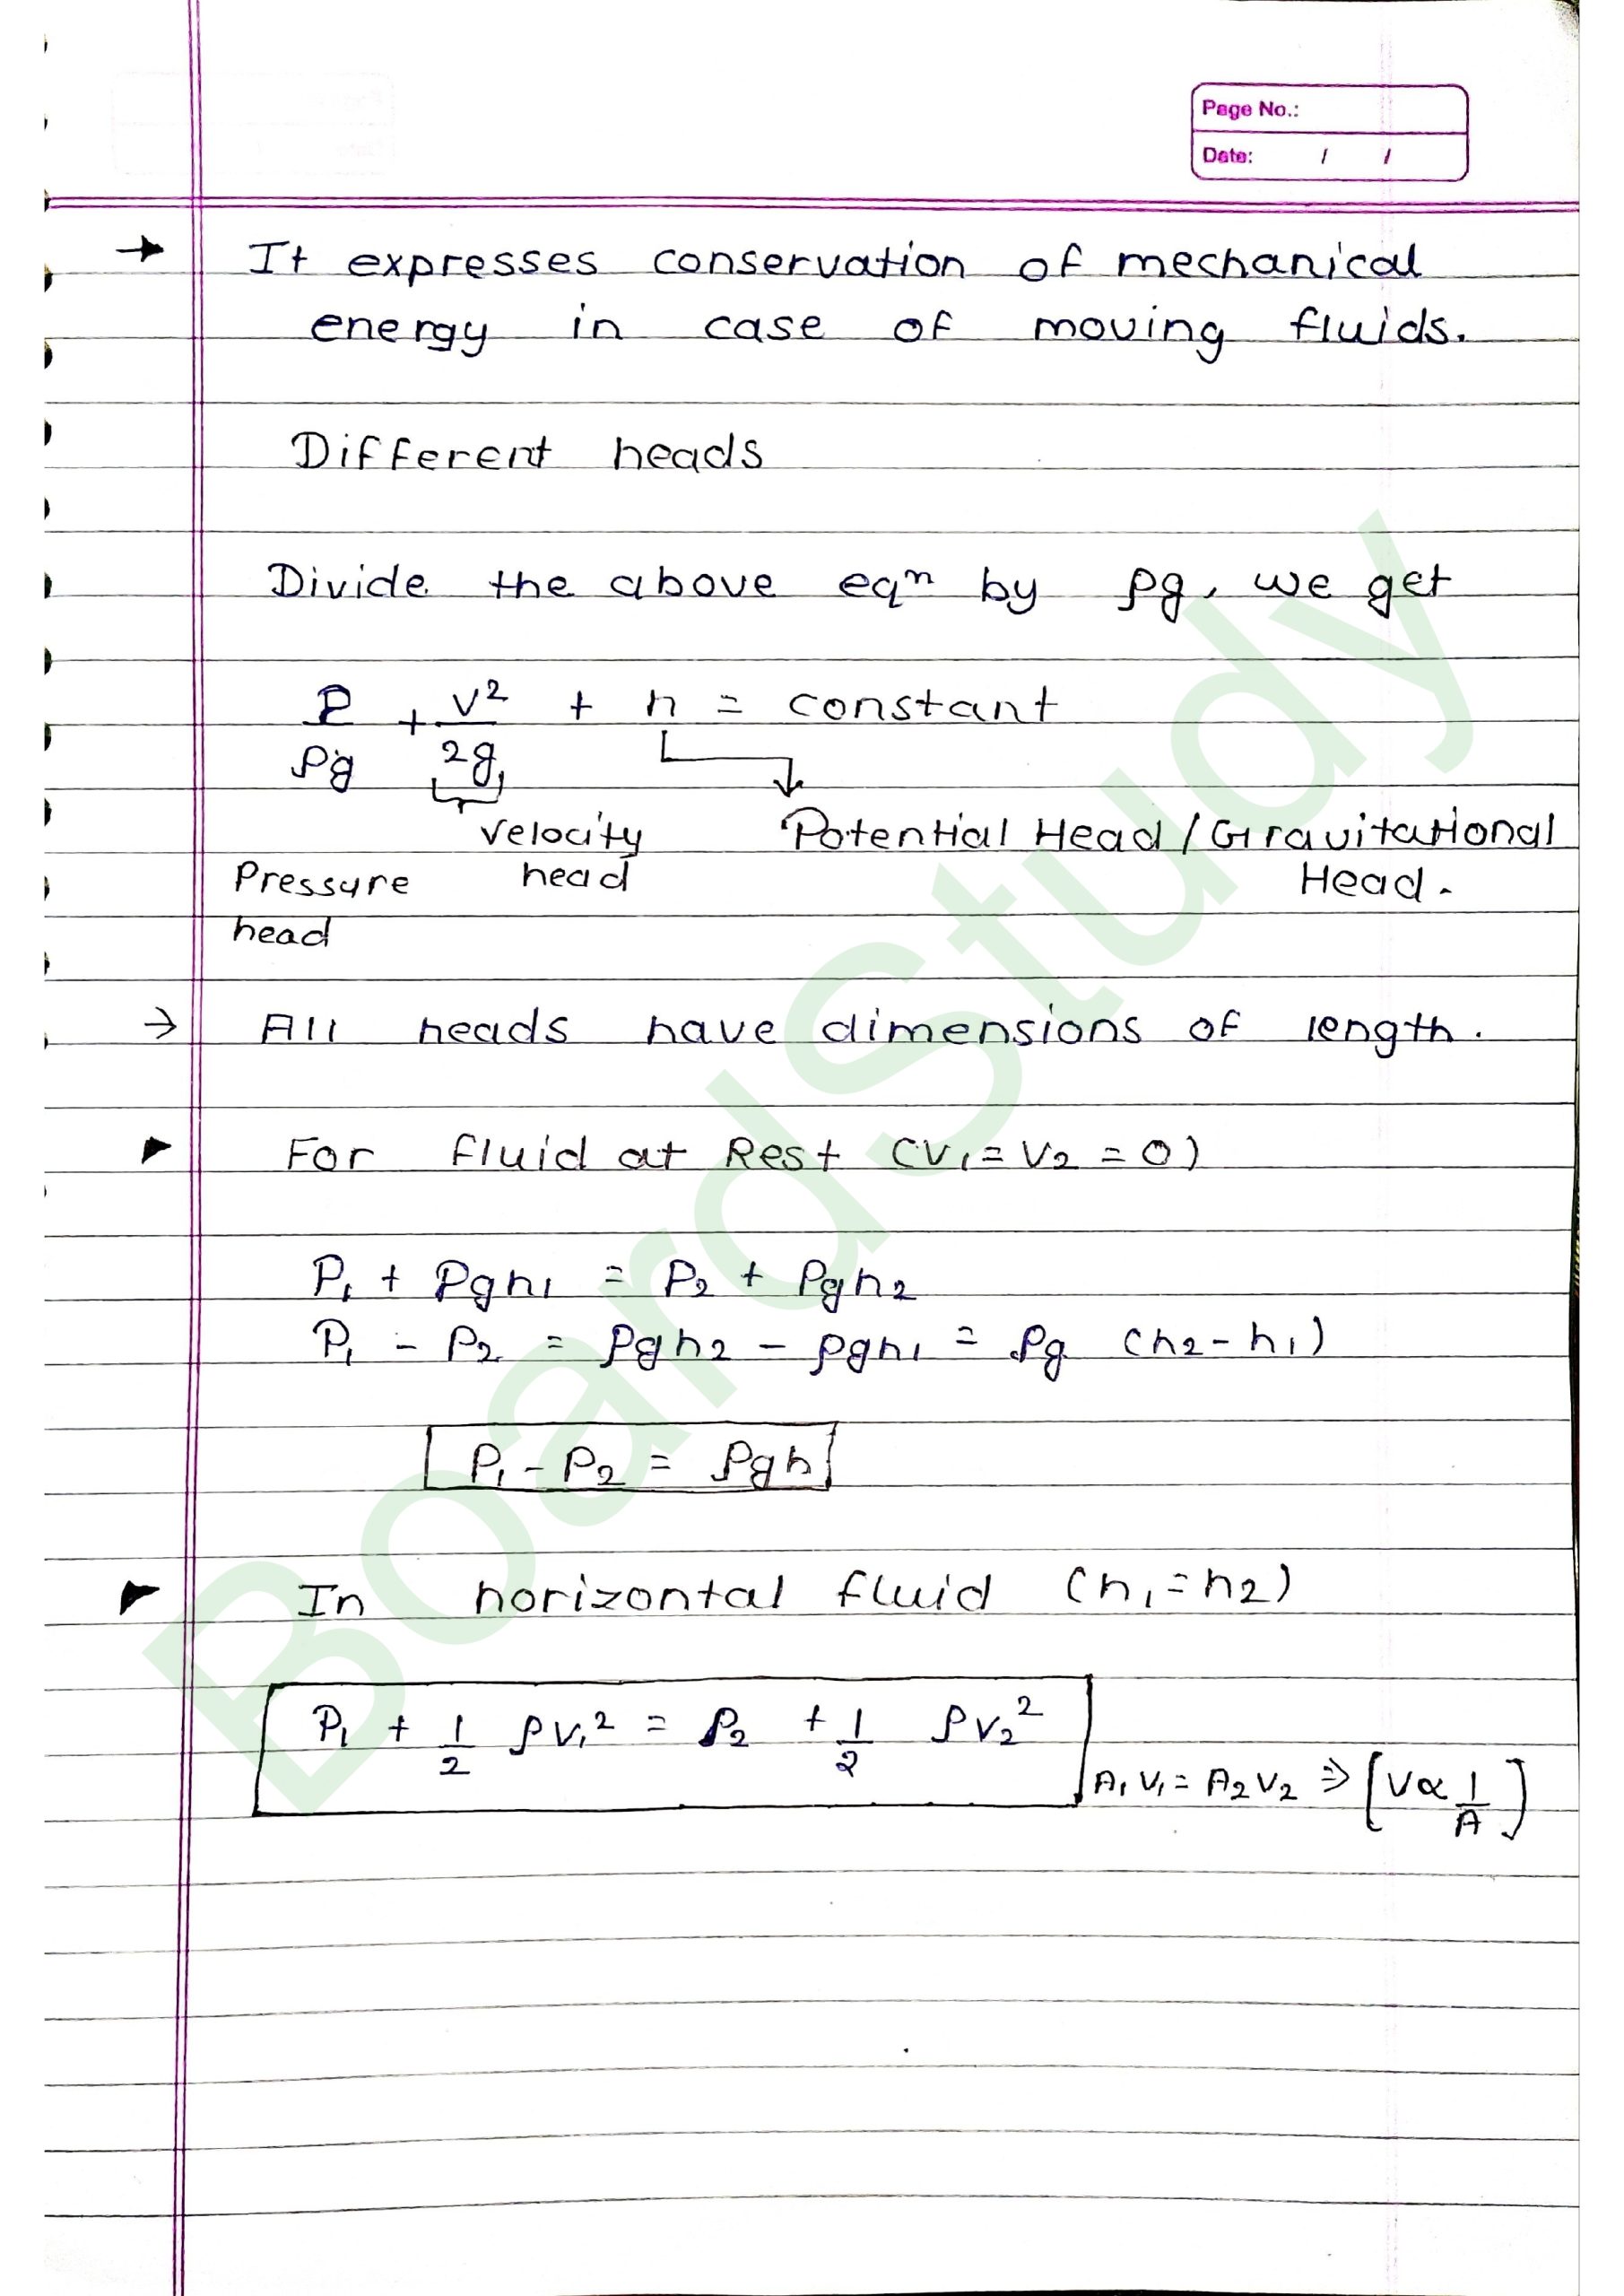 Page No.:
Date: / /
→ It expresses conservation of mechanical
energy in case of moving fluids.
Different heads
Divide the above eqⁿ by ρg, we get
P/ρg + v²/2g + h = constant
Velocity Potential Head / Gravitational
Pressure head Head.
head
→ All heads have dimensions of length.
▶ For fluid at Rest (V₁ = V₂ = 0)
P₁ + ρgh₁ = P₂ + ρgh₂
P₁ - P₂ = ρgh₂ - ρgh₁ = ρg (h₂ - h₁)
P₁ - P₂ = ρgh
▶ In horizontal fluid (h₁ = h₂)
P₁ + 1/2 ρv₁² = P₂ + 1/2 ρv₂²
A₁V₁ = A₂V₂ ⇒ [V∝ 1/A]
BoardStudy